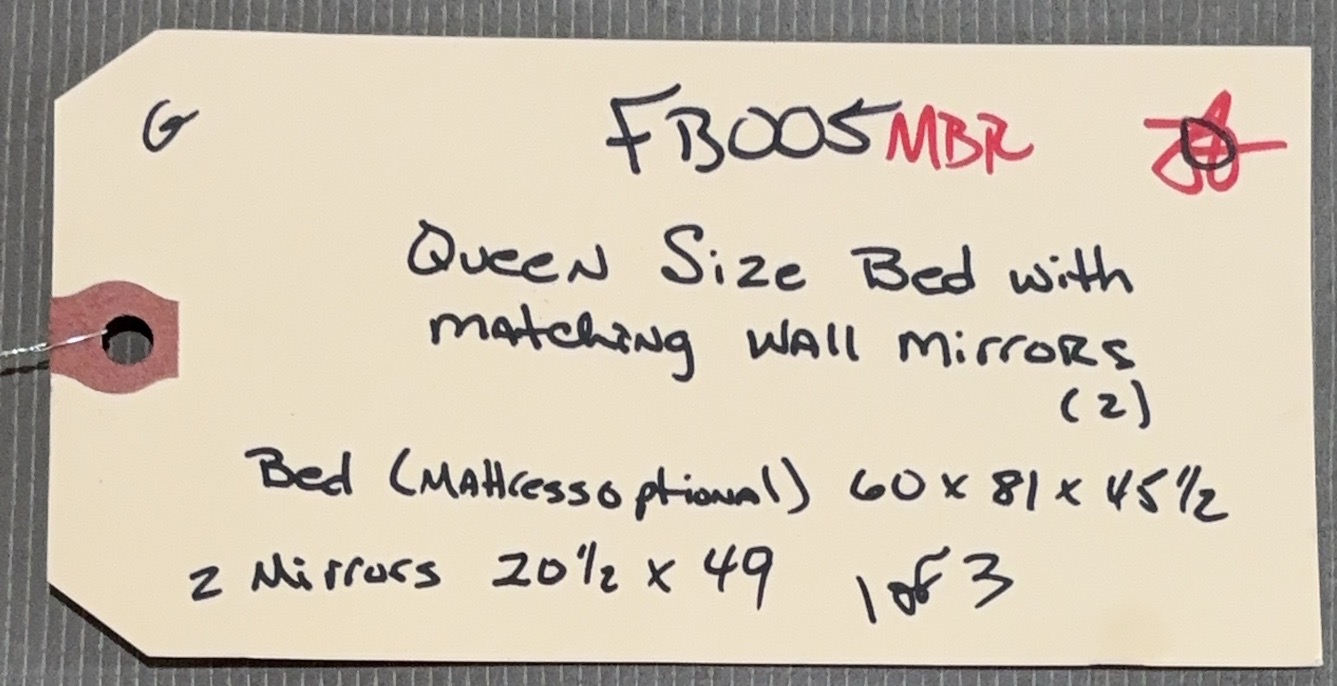 G FB005 MBR
Queen Size Bed with
matching wall mirrors
(2)
Bed (Mattress optional) 60 x 81 x 45 1/2
2 Mirrors 20 1/2 x 49 1 of 3